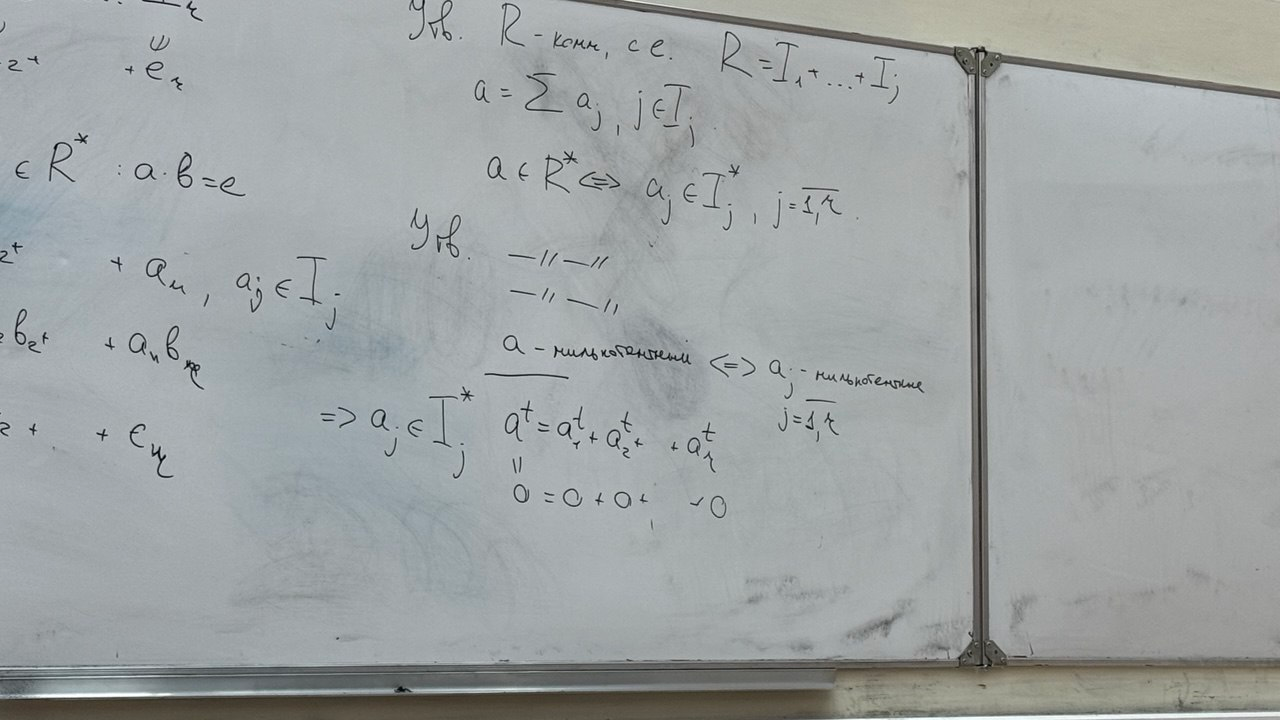 + e_r
∈ R* : a·b=e
+ a_n, a_j ∈ I_j
b_2+ + a_n b_r
+ e_r
=> a_j ∈ I_j*
Утв. R - комм, с е. R = I_1 + ... + I_j
a = ∑ a_j, j ∈ I_j
a ∈ R* <=> a_j ∈ I_j*, j = \overline{1,r}.
Утв. —//—//
—//—//
a - нильпотентный <=> a_j - нильпотентные
j = \overline{1,r}
a^t = a_1^t + a_2^t + + a_r^t
||
0 = 0 + 0 + 0